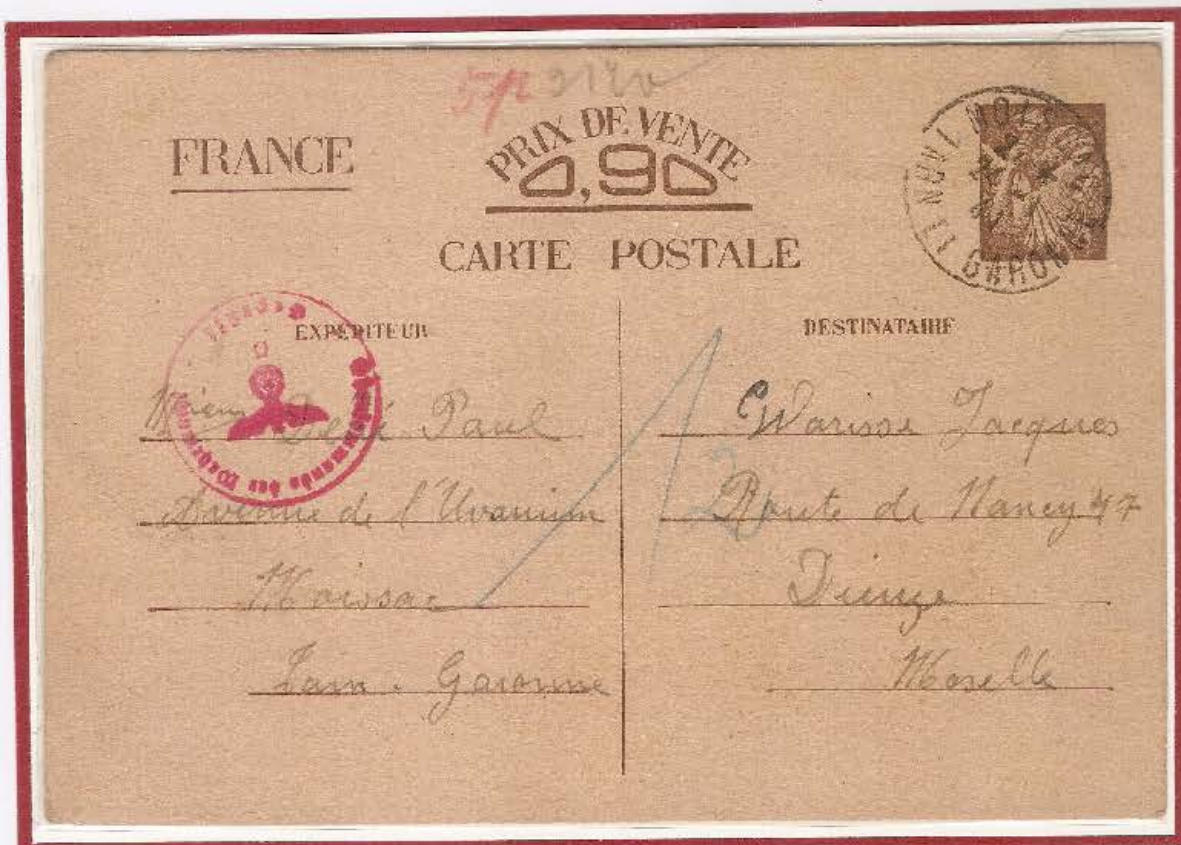 FRANCE
PRIX DE VENTE
0,90
CARTE POSTALE
EXPÉDITEUR
Paul
Avenue de l'Uvarium
Moissac
Tarn. Garonne
DESTINATAIRE
Warisse Jacques
Route de Nancy 47
Dieuze
Moselle
GARONNE
Oberkommando der Wehrmacht